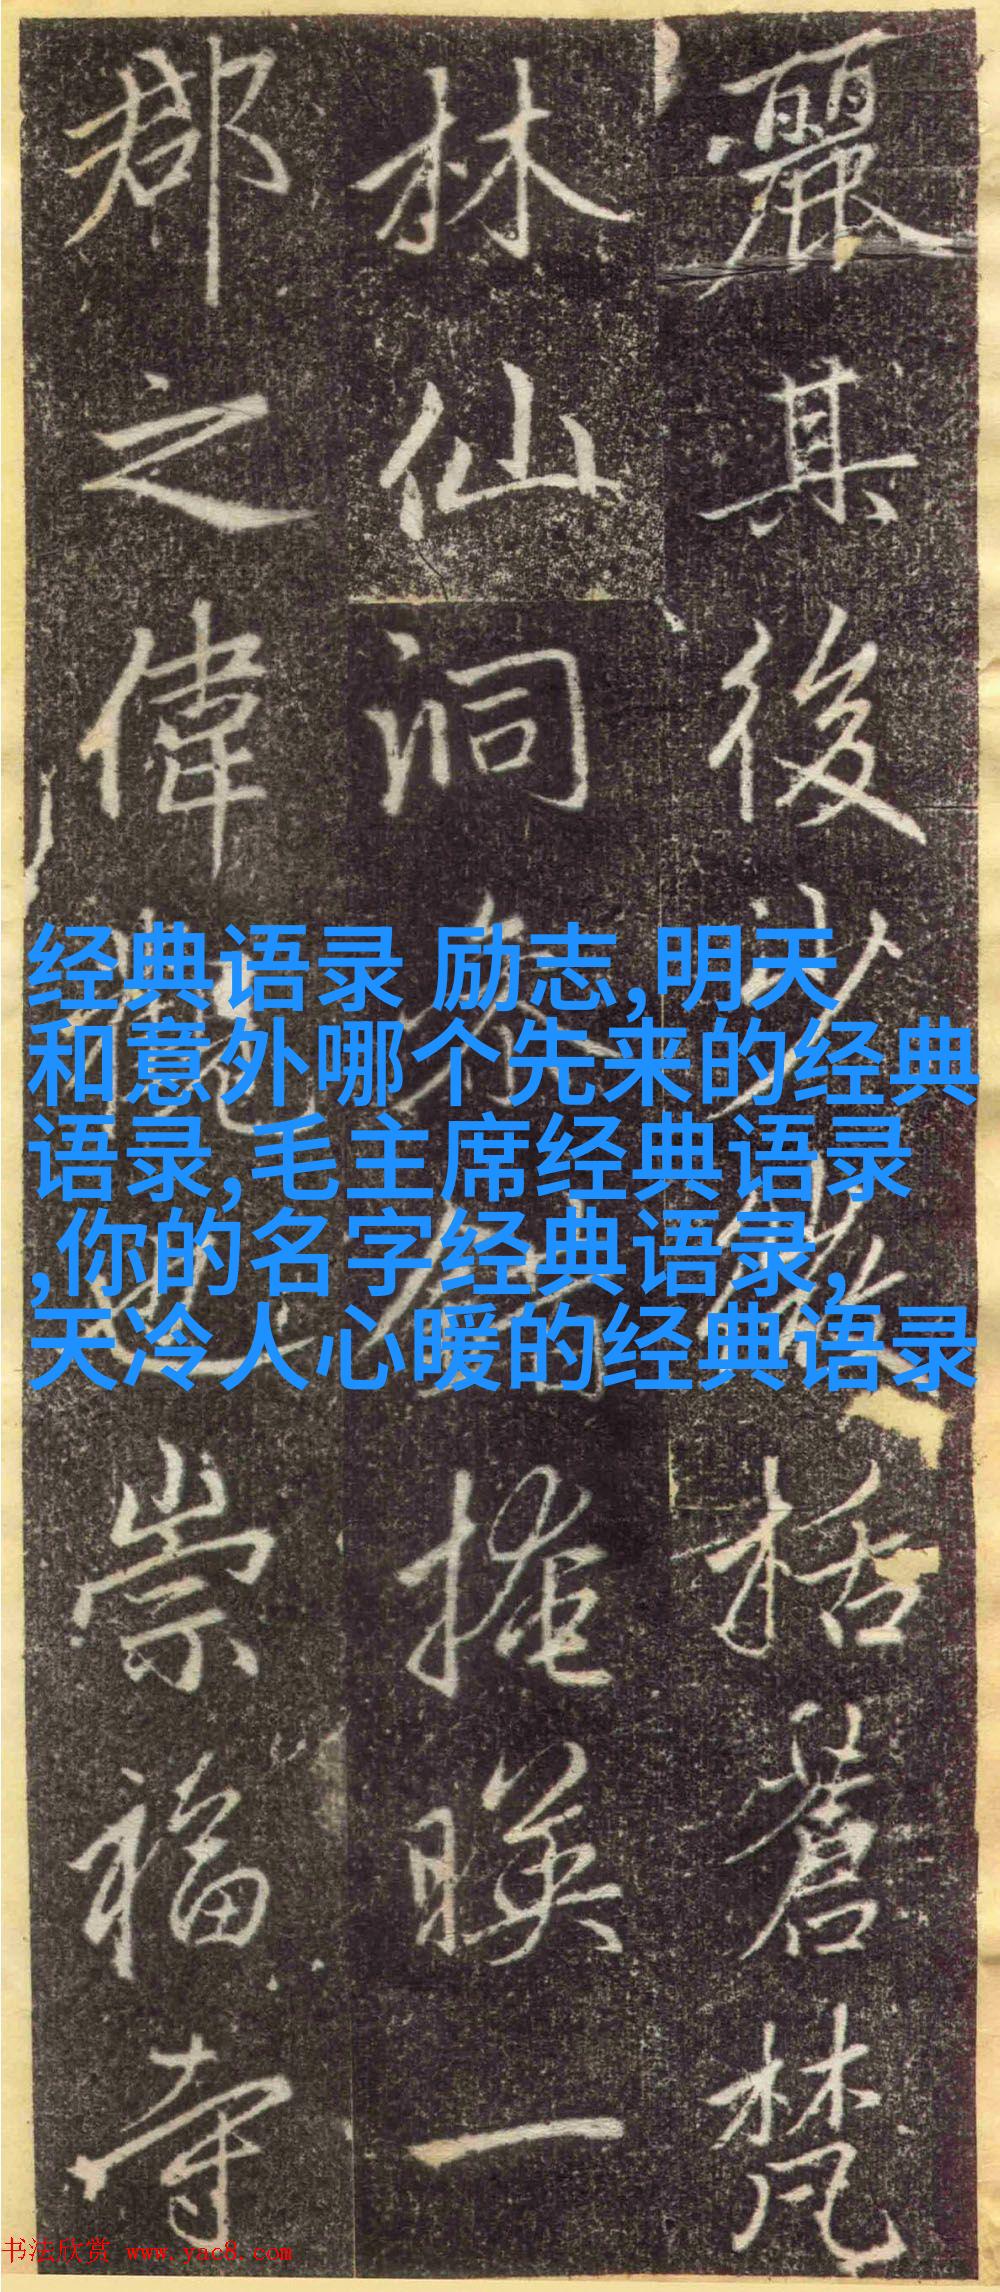 麗其後括蒼梵
林仙洞掩暎一
郡之偉觀也崇福寺
经典语录 励志,明天
和意外哪个先来的经典
语录,毛主席经典语录
,你的名字经典语录,
天冷人心暖的经典语录
书法欣赏 www.yac8.com